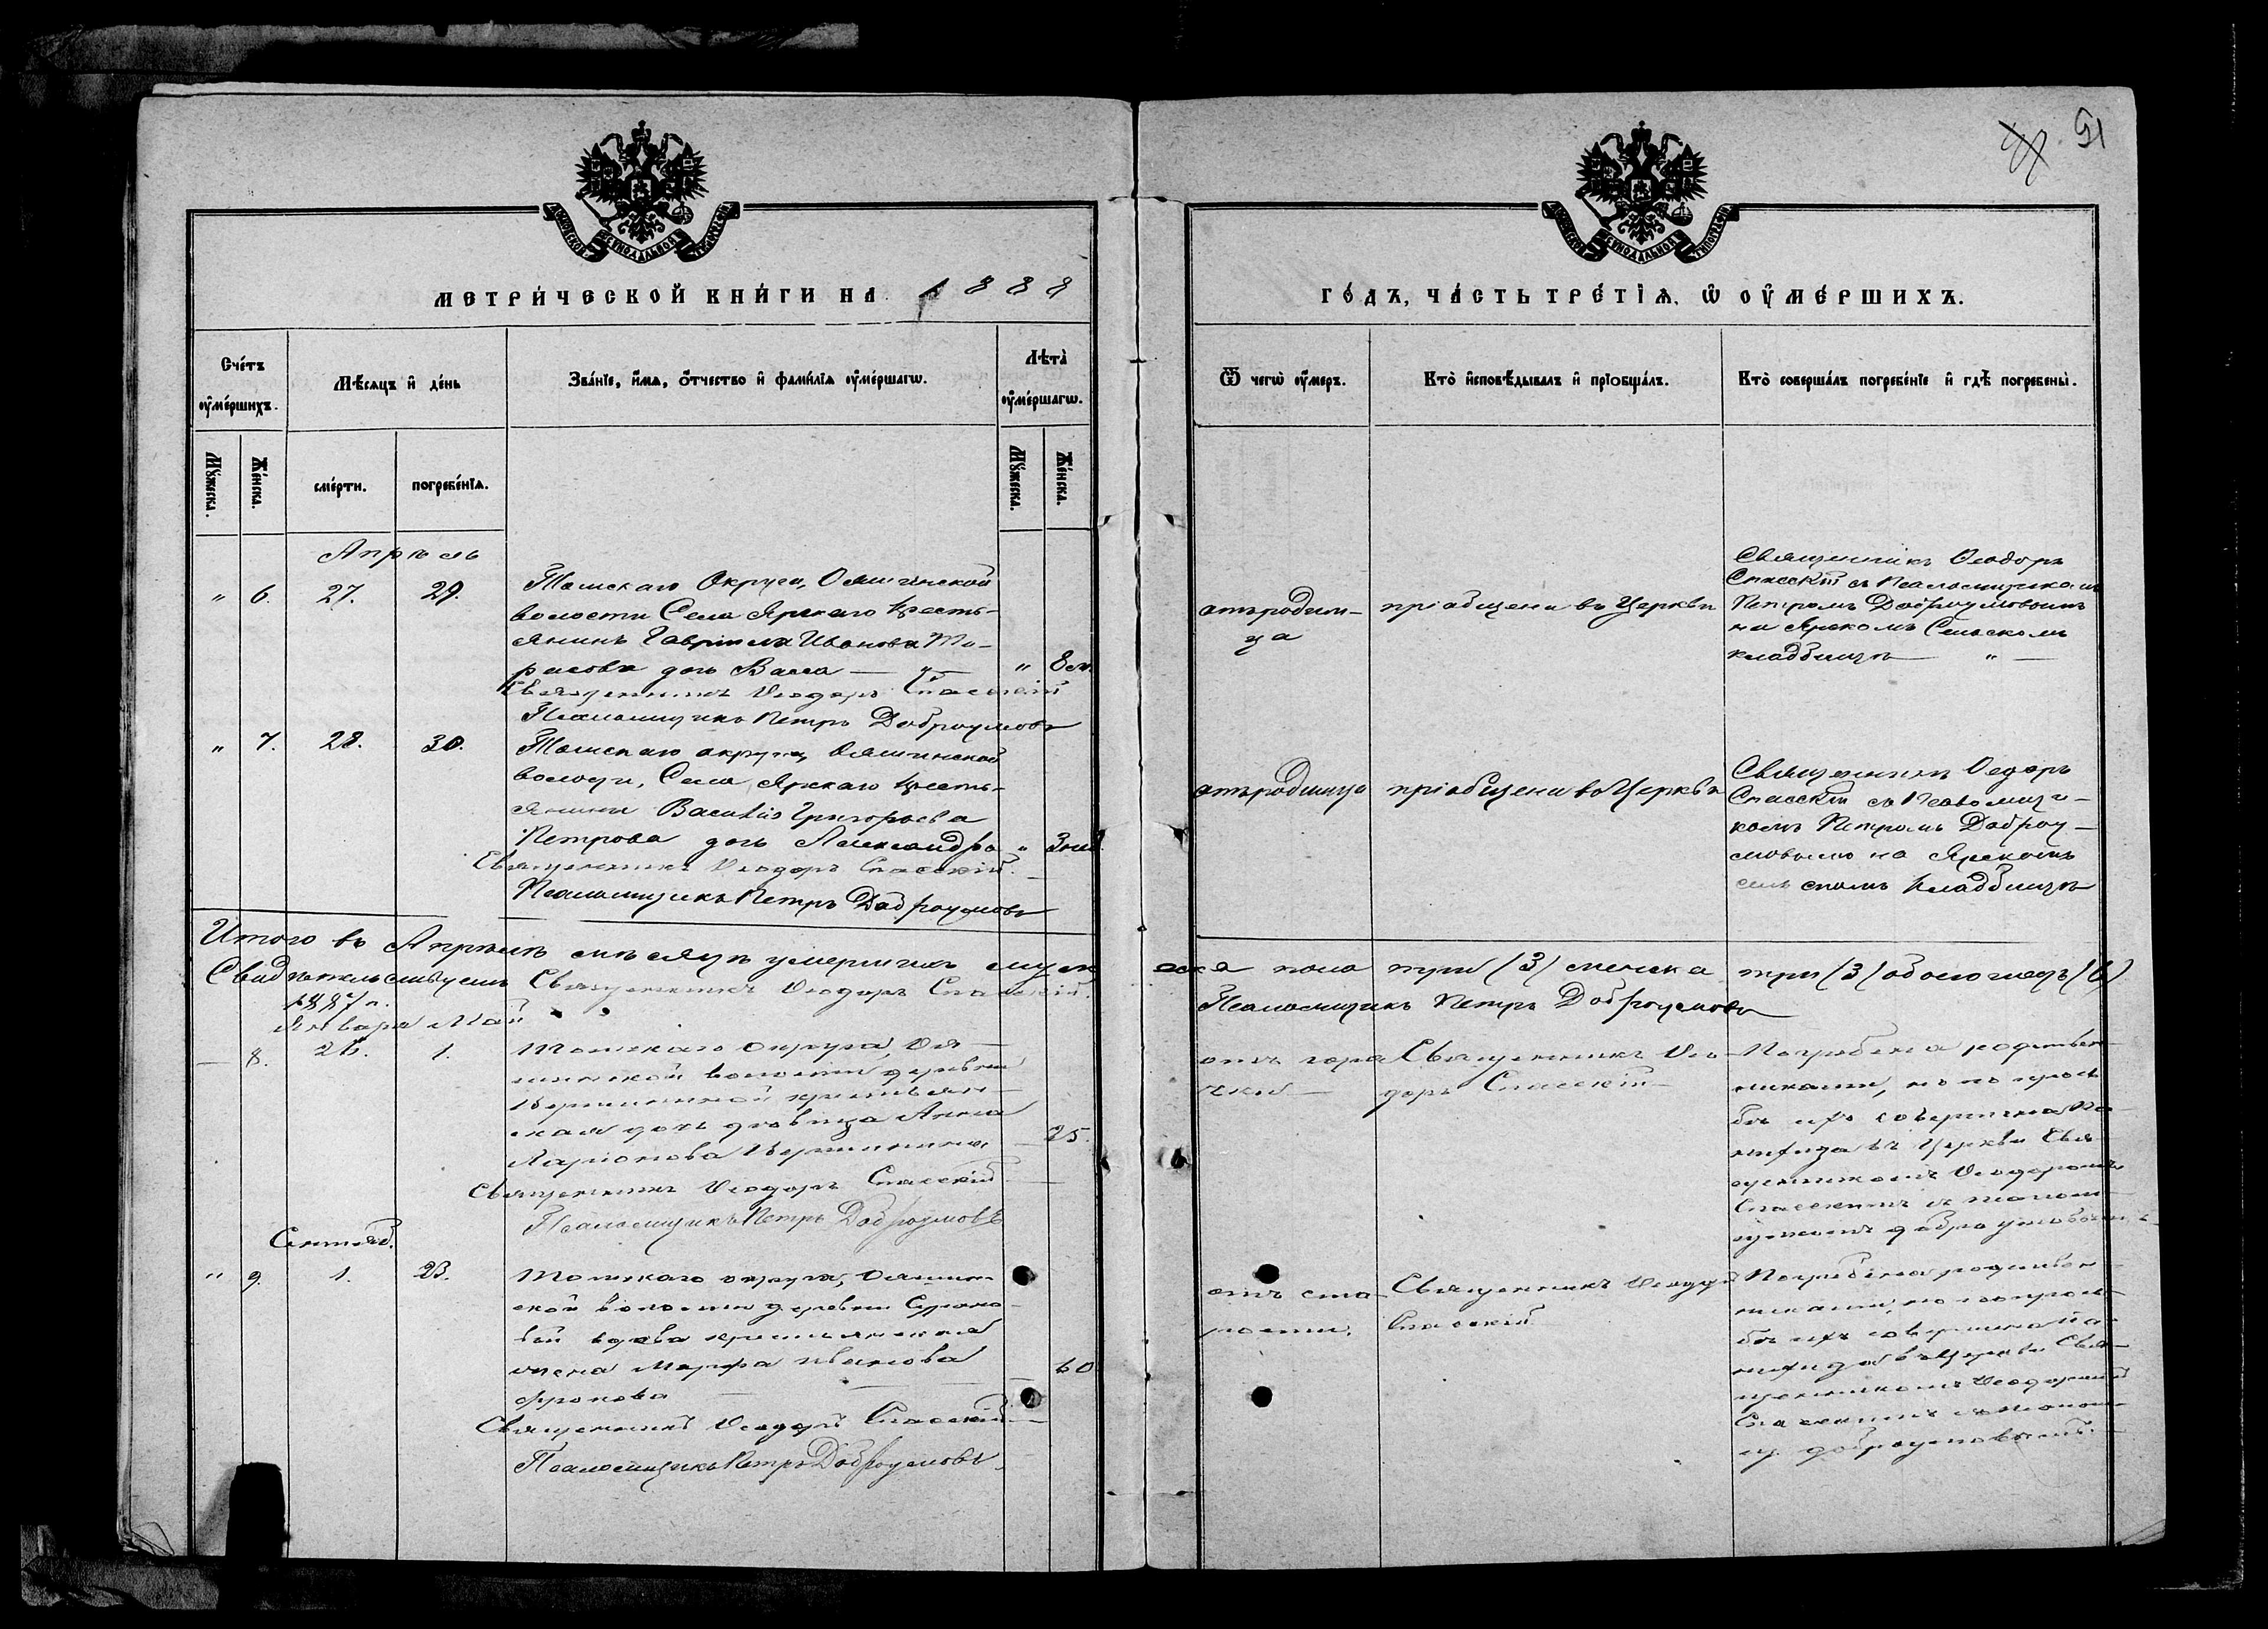 51
МЕТРИ́ЧЕСКОЙ КНИ́ГИ НА 1888
ГО́ДЪ, ЧА́СТЬ ТРЕ́ТІѦ, Ѡ ОУ҆МЕ́РШИХЪ.
Сче́тъ оу҆ме́ршихъ.
Мѣ́сѧцъ и҆ де́нь
Зва́нїе, и҆́мѧ, ѻ҆́тчество и҆ фамі́лїѧ оу҆ме́ршагѡ.
Лѣ́та оу҆ме́ршагѡ.
Ѿ чегѡ̀ оу҆́меръ.
Кто̀ и҆сповѣ́дывалъ и҆ прїѻбща́лъ.
Кто̀ соверша́лъ погребе́нїе и҆ гдѣ̀ погребены̀.
Му́жеска.
Же́нска.
сме́рти.
погребе́нїѧ.
Му́жеска.
Же́нска.
Апрѣль
" 6. 27. 29.
Томскаго Округа, Ояшинской
волости Села Ярскаго кресть-
янина Гавріила Иванова
дочь Васса — " —
" 8 м.
Священникъ Ѳеодоръ Спасскій
Псаломщикъ Петръ Доброумовъ
отъ родим-
ца
пріобщена въ Церкви
Священникъ Ѳеодоръ
Спасскій съ Псаломщикомъ
Петромъ Доброумовымъ
на Ярскомъ Сельскомъ
кладбищѣ — " —
" 7. 28. 30.
Томскаго округа, Ояшинской
волости, Села Ярскаго кресть-
янина Василія Григорьева
Петрова дочь Александра
" 3
Священникъ Ѳеодоръ Спасскій.
Псаломщикъ Петръ Доброумовъ
отъ родимца
пріобщена въ Церкви
Священникъ Ѳедоръ
Спасскій съ Псаломщи-
комъ Петромъ Доброу-
мовымъ на Ярскомъ
сельскомъ кладбищѣ
Итого въ Апрѣлѣ мѣсяцѣ умершихъ муж
еска пола три (3) женска три (3) обоего
Свидѣтельствуемъ Священникъ Ѳеодоръ Спасскій.
Псаломщикъ Петръ Доброумовъ
Января Май
— 8. 26. 1.
Томскаго округа, Оя-
шинской волости деревни
Вершининой крестьян-
ская дочь дѣвица Анна
Ларіонова Вершинина
25.
Священникъ Ѳеодоръ Спасскій
Псаломщикъ Петръ Доброумовъ
отъ горя
чки —
Священникъ Ѳео-
доръ Спасскій
Погребена родствен-
никами, но по прось-
бѣ ихъ совершена Па-
нихида въ Церкви Свя-
щенникомъ Ѳеодоромъ
Спасскимъ
Доброумовымъ
Сентяб.
" 9. 1. 23.
Томскаго округа, Ояшин-
ской волости деревни
вой вдова крестьянская
жена Марфа Иванова
60
Священникъ Ѳеодоръ Спасскій
Псаломщикъ Петръ Доброумовъ.
отъ ста-
рости.
Священникъ Ѳеодоръ
Спасскій
Погребена родствен-
никами, но по прось-
бѣ ихъ совершена Па-
нихида въ Церкви Свя-
щенникомъ Ѳеодоромъ
Спасскимъ
Доброумовымъ.